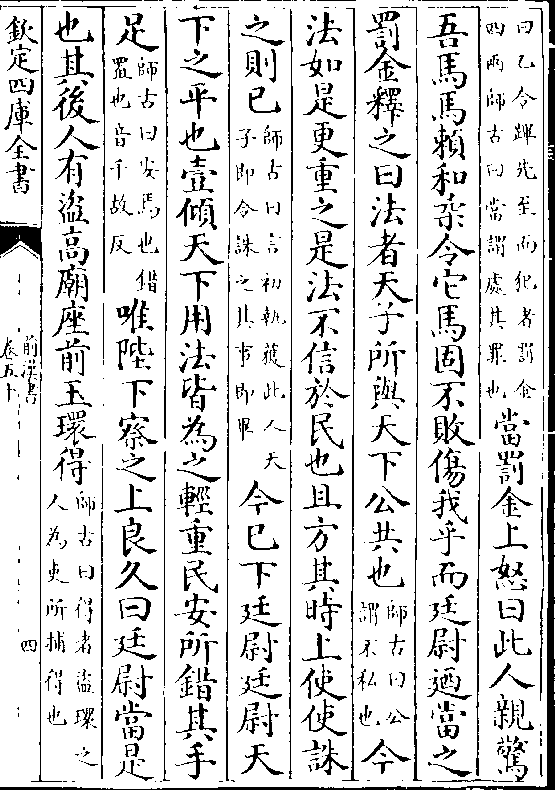 曰乙令蹕先至而犯者罰金
四兩師古曰當謂處其罪也
當罰金上怒曰此人親驚
吾馬馬賴和柔令它馬固不敗傷我乎而廷尉廼當之
罰金釋之曰法者天子所與天下公共也
師古曰公
謂不私也
今
法如是更重之是法不信於民也且方其時上使使誅
之則已
師古曰言初執獲此人天
子即令誅之其事即畢
今已下廷尉廷尉天
下之平也壹傾天下用法皆為之輕重民安所錯其手
足
師古曰安焉也錯
置也音千故反
唯陛下察之上良久曰廷尉當是
也其後人有盜高廟座前玉環得
師古曰得者盜環之
人為吏所捕得也
欽定四庫全書
前漢書
卷五十
四